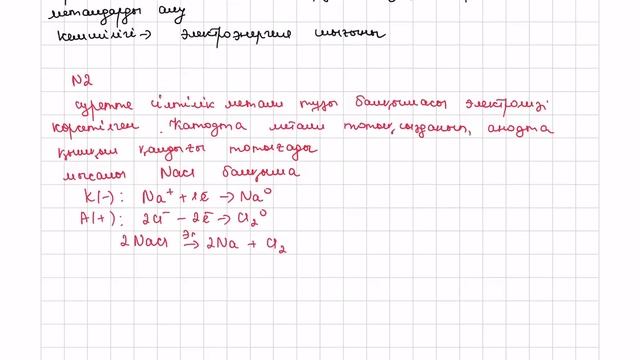 металдарды алу
кемшілігі → электроэнергия шығыны
N2
суретте сілтілік металл тұзы балқымасы электролизі
көрсетілген. Катодта металл тотықсызданып, анодта
қышқыл қалдығы тотығады
мысалы NaCl балқыма
K(-): Na⁺ + 1ē → Na⁰
A(+): 2Cl⁻ - 2ē → Cl₂⁰
2NaCl эл→ 2Na + Cl₂